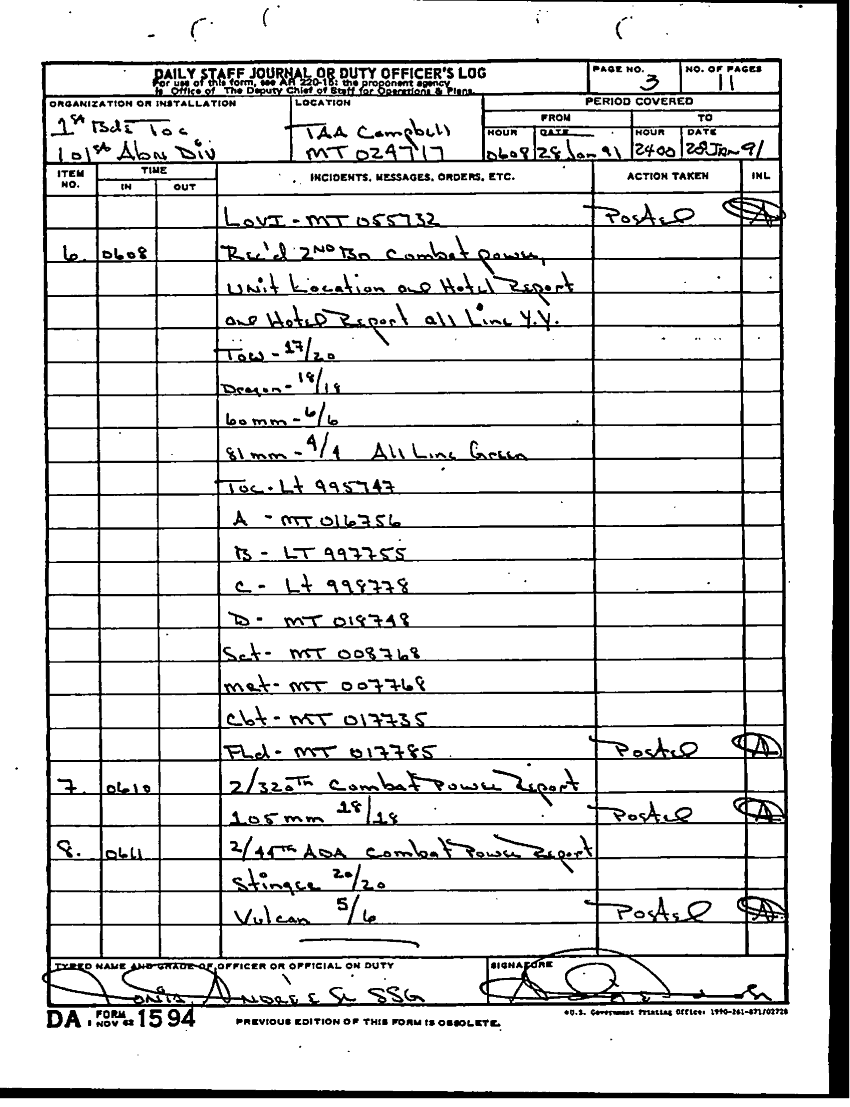 DAILY STAFF JOURNAL OR DUTY OFFICER'S LOG
For use of this form, see AR 220-15; the proponent agency
is Office of The Deputy Chief of Staff for Operations & Plans.
PAGE NO.
3
NO. OF PAGES
11
ORGANIZATION OR INSTALLATION
1st Bde Toc
101st Abn Div
LOCATION
TAA Campbell
MT 024717
PERIOD COVERED
FROM
TO
HOUR
DATE
HOUR
DATE
0608
28 Jan 91
2400
28 Jan 91
ITEM NO.
TIME
IN
OUT
INCIDENTS, MESSAGES, ORDERS, ETC.
ACTION TAKEN
INL
LOVI - MT 055732 Posted
6. 0608 Rec'd 2ND Bn Combat power,
Unit Location and Hotel Report
and Hotel Report all Line Y.Y.
Tow - 17/20
Dragon - 18/18
60mm - 6/6
81mm - 4/4 All Line Green
Toc - Lt 995747
A - MT 016756
B - LT 997755
C - Lt 998778
D - MT 018748
Sct - MT 008768
met - MT 007768
Cbt - MT 017735
Fld - MT 017785 Posted
7. 0610 2/320th Combat Power Report
105mm 18/18 Posted
8. 0611 2/44th ADA Combat Power Report
Stinger 20/20
Vulcan 5/6 Posted
TYPED NAME AND GRADE OF OFFICER OR OFFICIAL ON DUTY
SSG
SIGNATURE
DA FORM 1 NOV 62 1594
PREVIOUS EDITION OF THIS FORM IS OBSOLETE.
U.S. Government Printing Office: 1990-261-871/02728